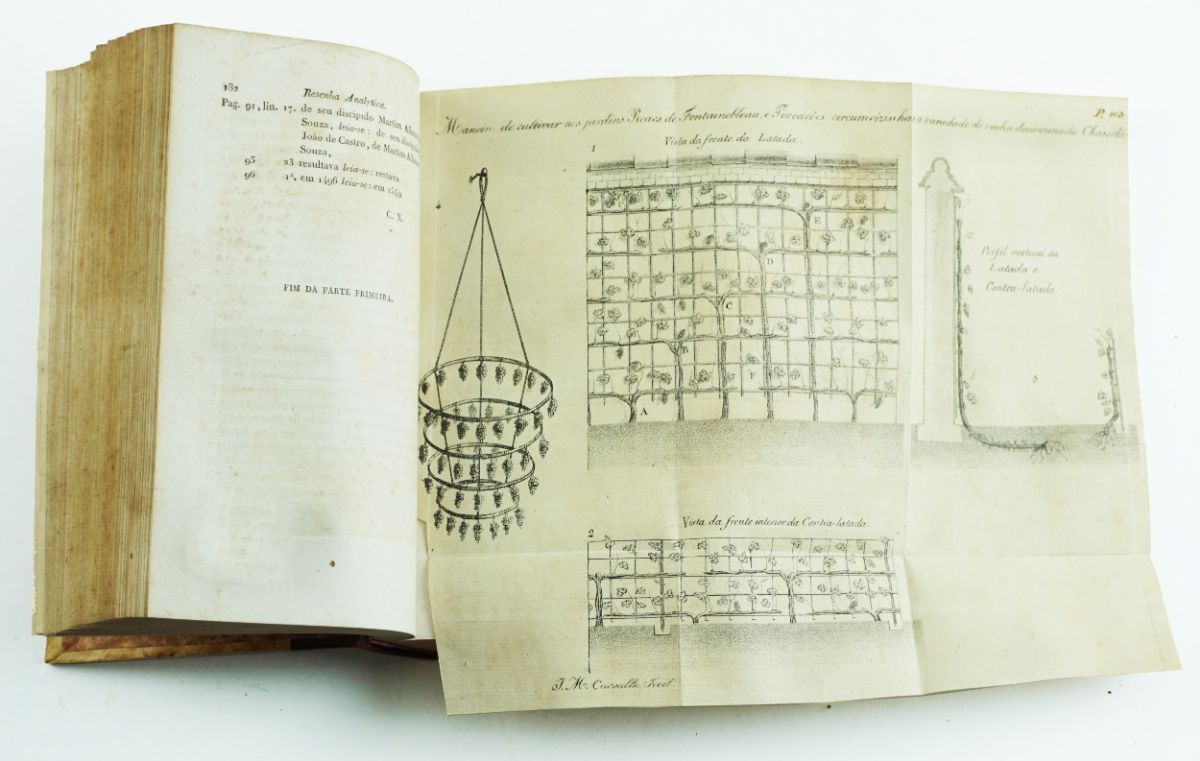 182
Resenha Analytica.
Pag. 91, lin. 17. de seu discipulo Martim
Souza, leia-se: de seu
João de Castro, de Martim
Souza,
95 23 resultava leia-se: restava
96 1ª. em 1496 leia-se: em 1499
C. X.
FIM DA PARTE PRIMEIRA.
P. 103
de cultivar nos jardins Reaes de Fontainebleau, e Povoações circumvizinhas a varadade de vinha denominada
Vista da frente da Latada.
1
E
D
C
B
F
A
Perfil vertical da
Latada e
Contra-latada.
Vista da frente interior da Contra-latada.
2
J. M. Carvalho, Fecit.